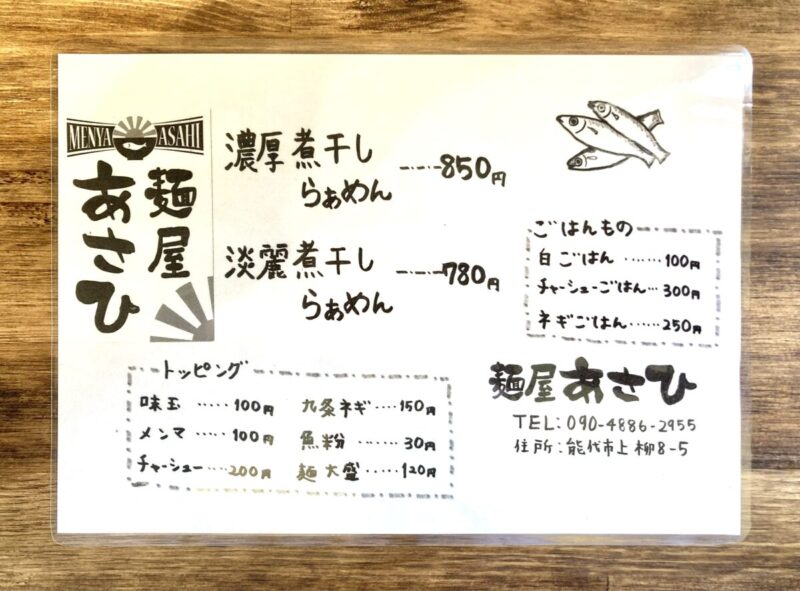 MENYA ASAHI
麺屋
あさひ
濃厚煮干し
らぁめん ------850円
淡麗煮干し
らぁめん ------780円
ごはんもの
白ごはん ……100円
チャーシューごはん…300円
ネギごはん……250円
トッピング
味玉 ……100円
メンマ ……100円
チャーシュー…200円
九条ネギ…150円
魚粉 ……30円
麺大盛……120円
麺屋あさひ
TEL:090-4886-2955
住所:能代市上柳8-5